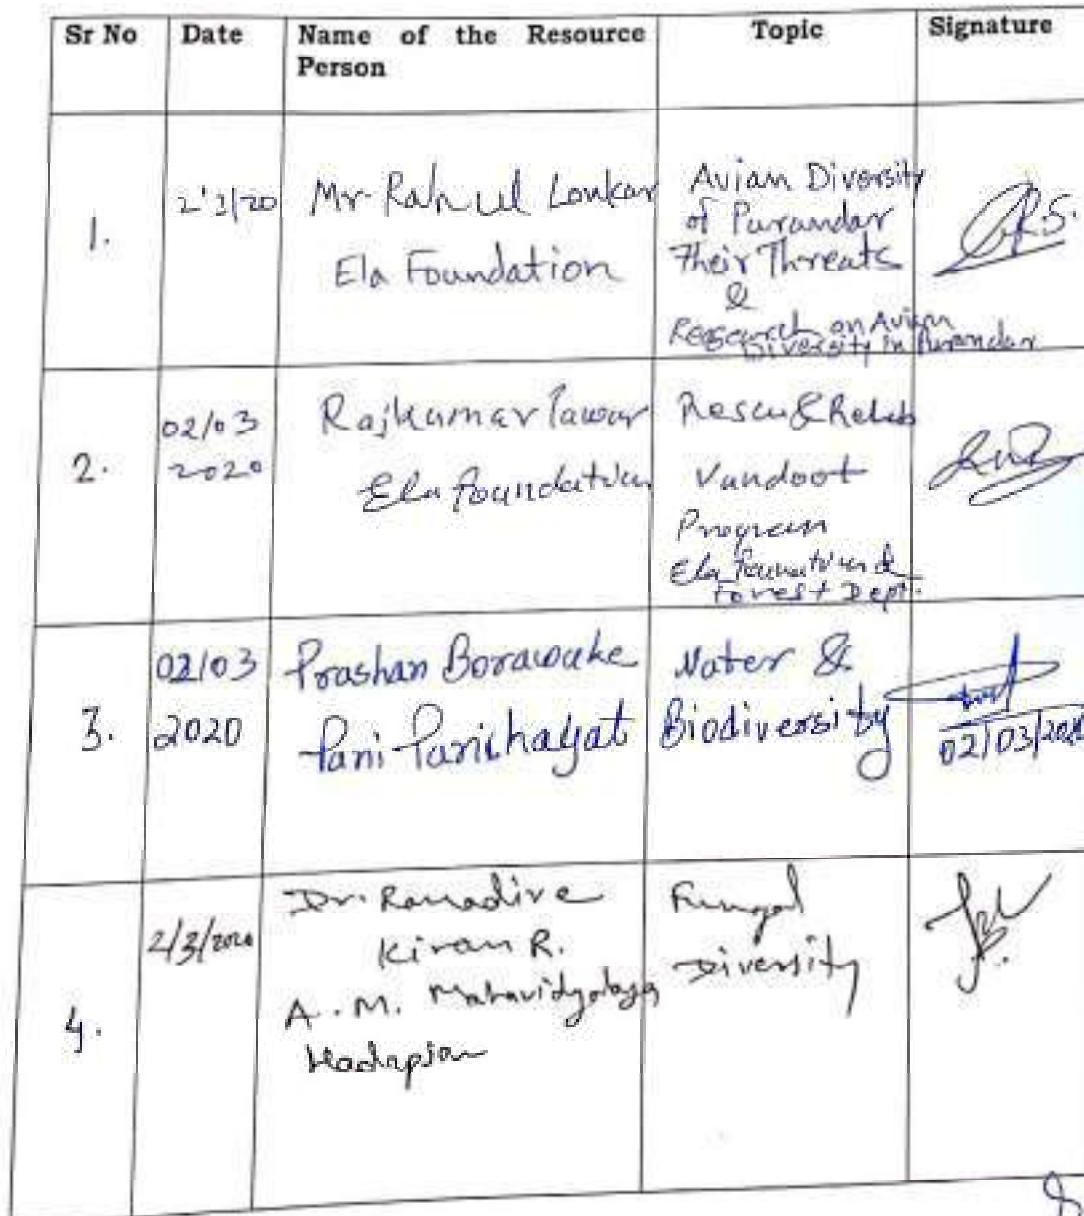 Sr No Date Name of the Resource Person Topic Signature
1. 2'3/20 Mr. Rahul Lonkar
Ela Foundation
Avian Diversity
of Purandar
Their Threats
&
Research on Avian
Diversity in Purandar
R.S.
2. 02/03
2020
Rajkumar Pawar
Ela Foundation
Rescu & Rehab
Vandoot
Program
Ela Foundation &
Forest Dept.
3. 02/03
2020
Prashan Borawake
Pani Panchayat
Water &
Biodiversity
02/03/2020
4. 2/3/2020
Dr. Ranadive
Kiran R.
A.M. Mahavidyalaya
Hadapsar
Fungal
Diversity